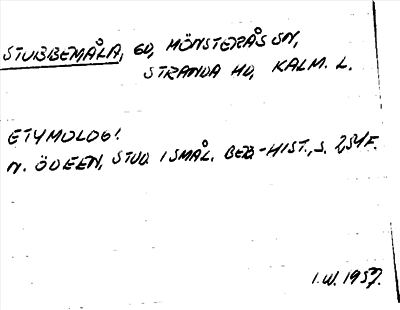 STUBBEMÅLA, GD, MÖNSTERÅS SN,
STRANDA HD, KALM. L.
ETYMOLOGI
N. ÖDEEN, STUD. I SMÅL. BEB-HIST., S. 254F.
I.W. 1957.